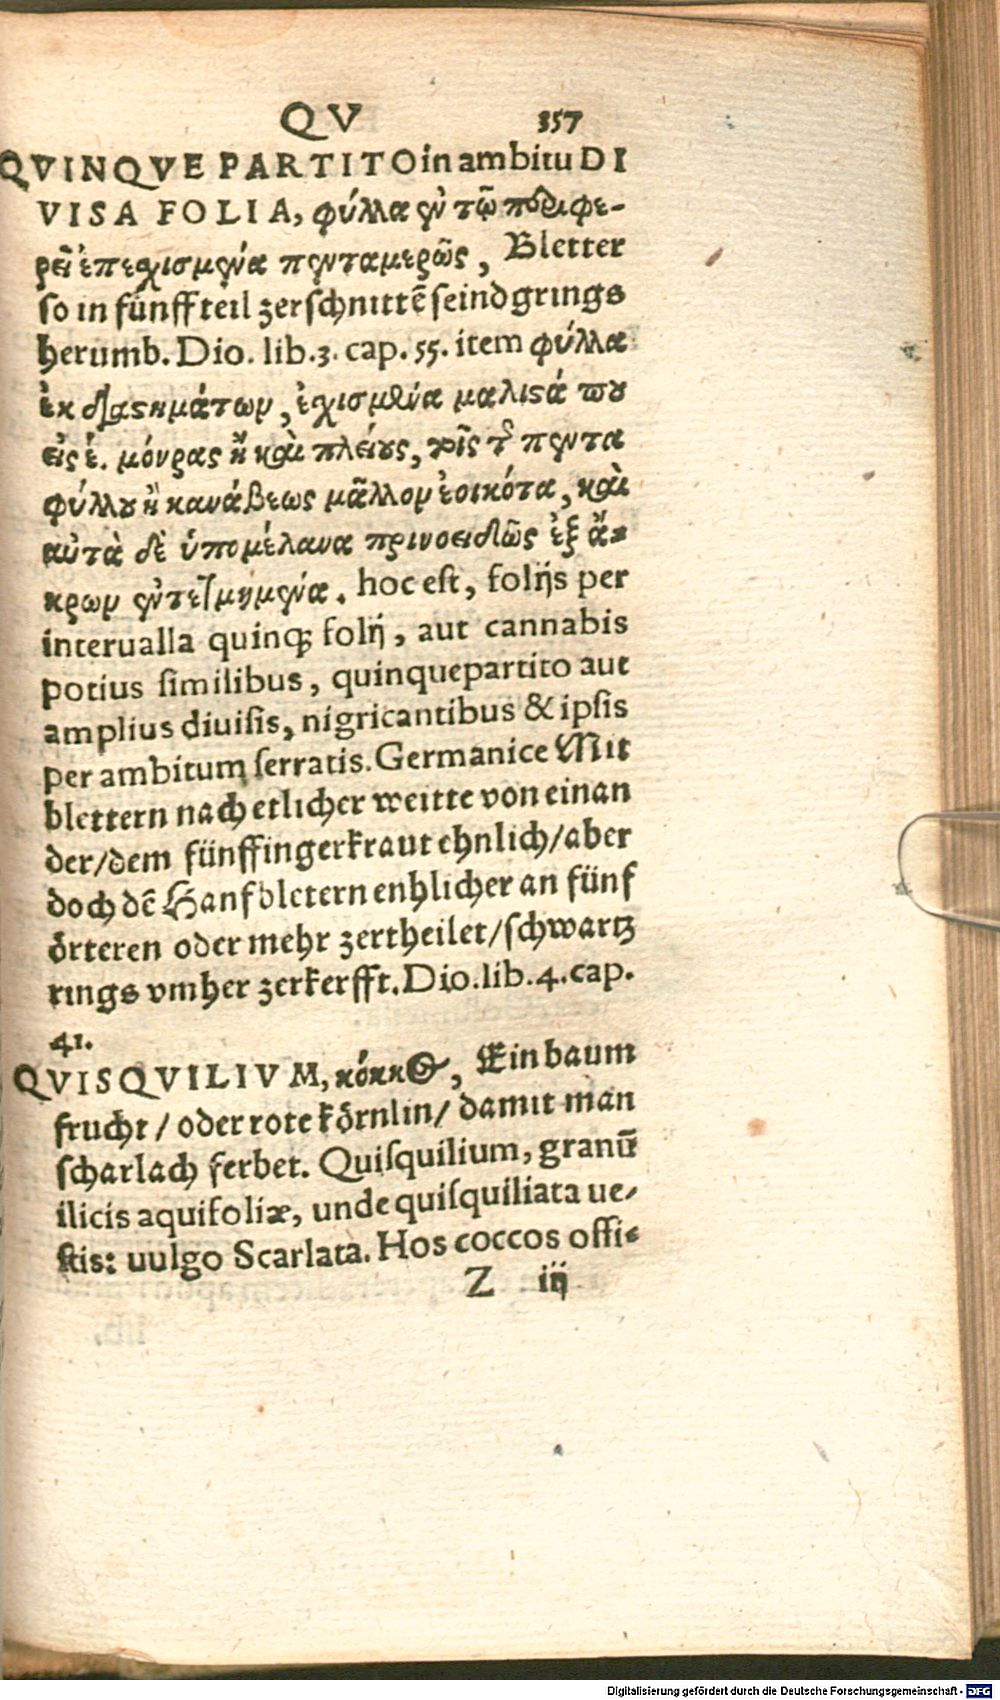 QV 357
QVINQVEPARTITO in ambitu DI
VISA FOLIA, φύλλα ἐν τῷ περιφε-
ρεῖ ἐπεχισμένα πενταμερῶς, Bletter
so in fünff teil zerschnittē seind grings
herumb. Dio. lib. 3. cap. 55. item φύλλα
ἐκ διαςημάτων, ἐχισμένα μαλιςά που
εἰς ἑ. μόνρας ἢ καὶ πλείους, τοῖς τ πεντα
φύλλου ἢ κανάβεως μᾶλλον ἐοικότα, καὶ
αὐτὰ δὲ ὑπομέλανα πρινοειδῶς ἐξ ἄ=
κρων ἐντετμημένα. hoc est, folijs per
interualla quinq; folij, aut cannabis
potius similibus, quinquepartito aut
amplius diuisis, nigricantibus & ipsis
per ambitum serratis. Germanice Mit
blettern nach etlicher weitte von einan
der/dem fünffingerkraut ehnlich/aber
doch dē Hanfbletern enhlicher an fünf
örteren oder mehr zertheilet/schwartz
rings vmher zerkerfft. Dio. lib. 4. cap.
41.
QVISQVILIVM, κόκκος, Ein baum
frucht/ oder rote körnlin/ damit man
scharlach ferbet. Quisquilium, granū
ilicis aquifoliæ, unde quisquiliata ue-
stis: uulgo Scarlata. Hos coccos offi-
Z iij
lib.
Digitalisierung gefördert durch die Deutsche Forschungsgemeinschaft - DFG